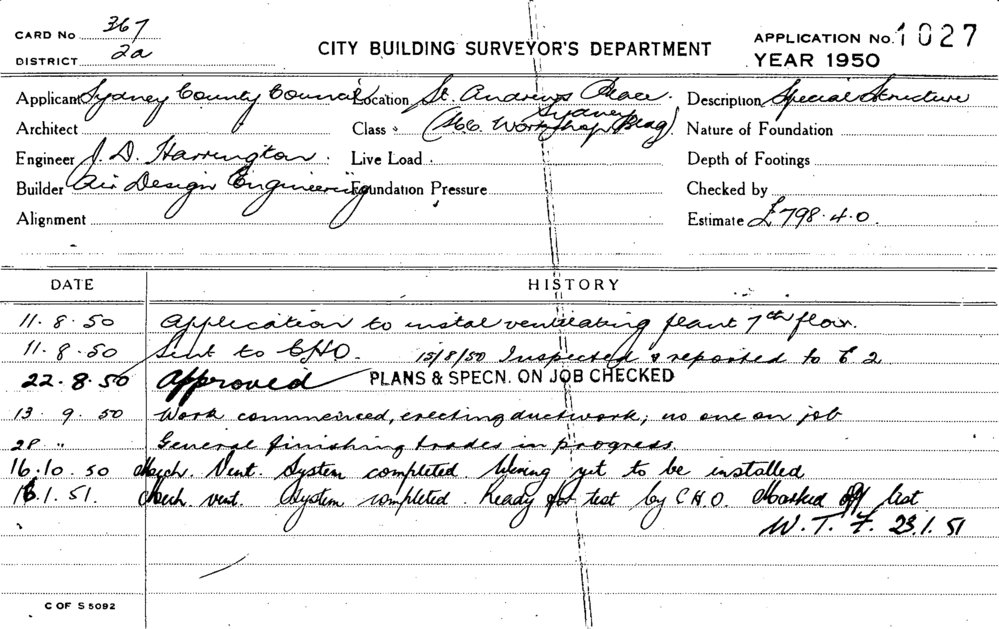 CARD No 367
DISTRICT 2a
CITY BUILDING SURVEYOR'S DEPARTMENT
APPLICATION No. 1027
YEAR 1950
Applicant Sydney County Council Location St. Andrews Place. Sydney Description Special Structure
Architect Class (S.C.C. Workshop Bldg) Nature of Foundation
Engineer J. D. Harrington. Live Load Depth of Footings
Builder Air Design Engineering Foundation Pressure Checked by
Alignment Estimate £798.4.0.
DATE HISTORY
11.8.50 Application to instal ventilating plant 7th floor.
11.8.50 Sent to CHO. 15/8/50 Inspected & reported to C 2
22.8.50 Approved PLANS & SPECN. ON JOB CHECKED
13 9.50 Work commenced, erecting ductwork; no one on job
28 " General finishing trades in progress.
16.10.50 Mech. Vent. System completed. Wiring yet to be installed
16.1.51. Mech. vent. System completed. Ready for test by C.H.O. Marked off list
W. T. F. 23.1.51
C OF S 5092